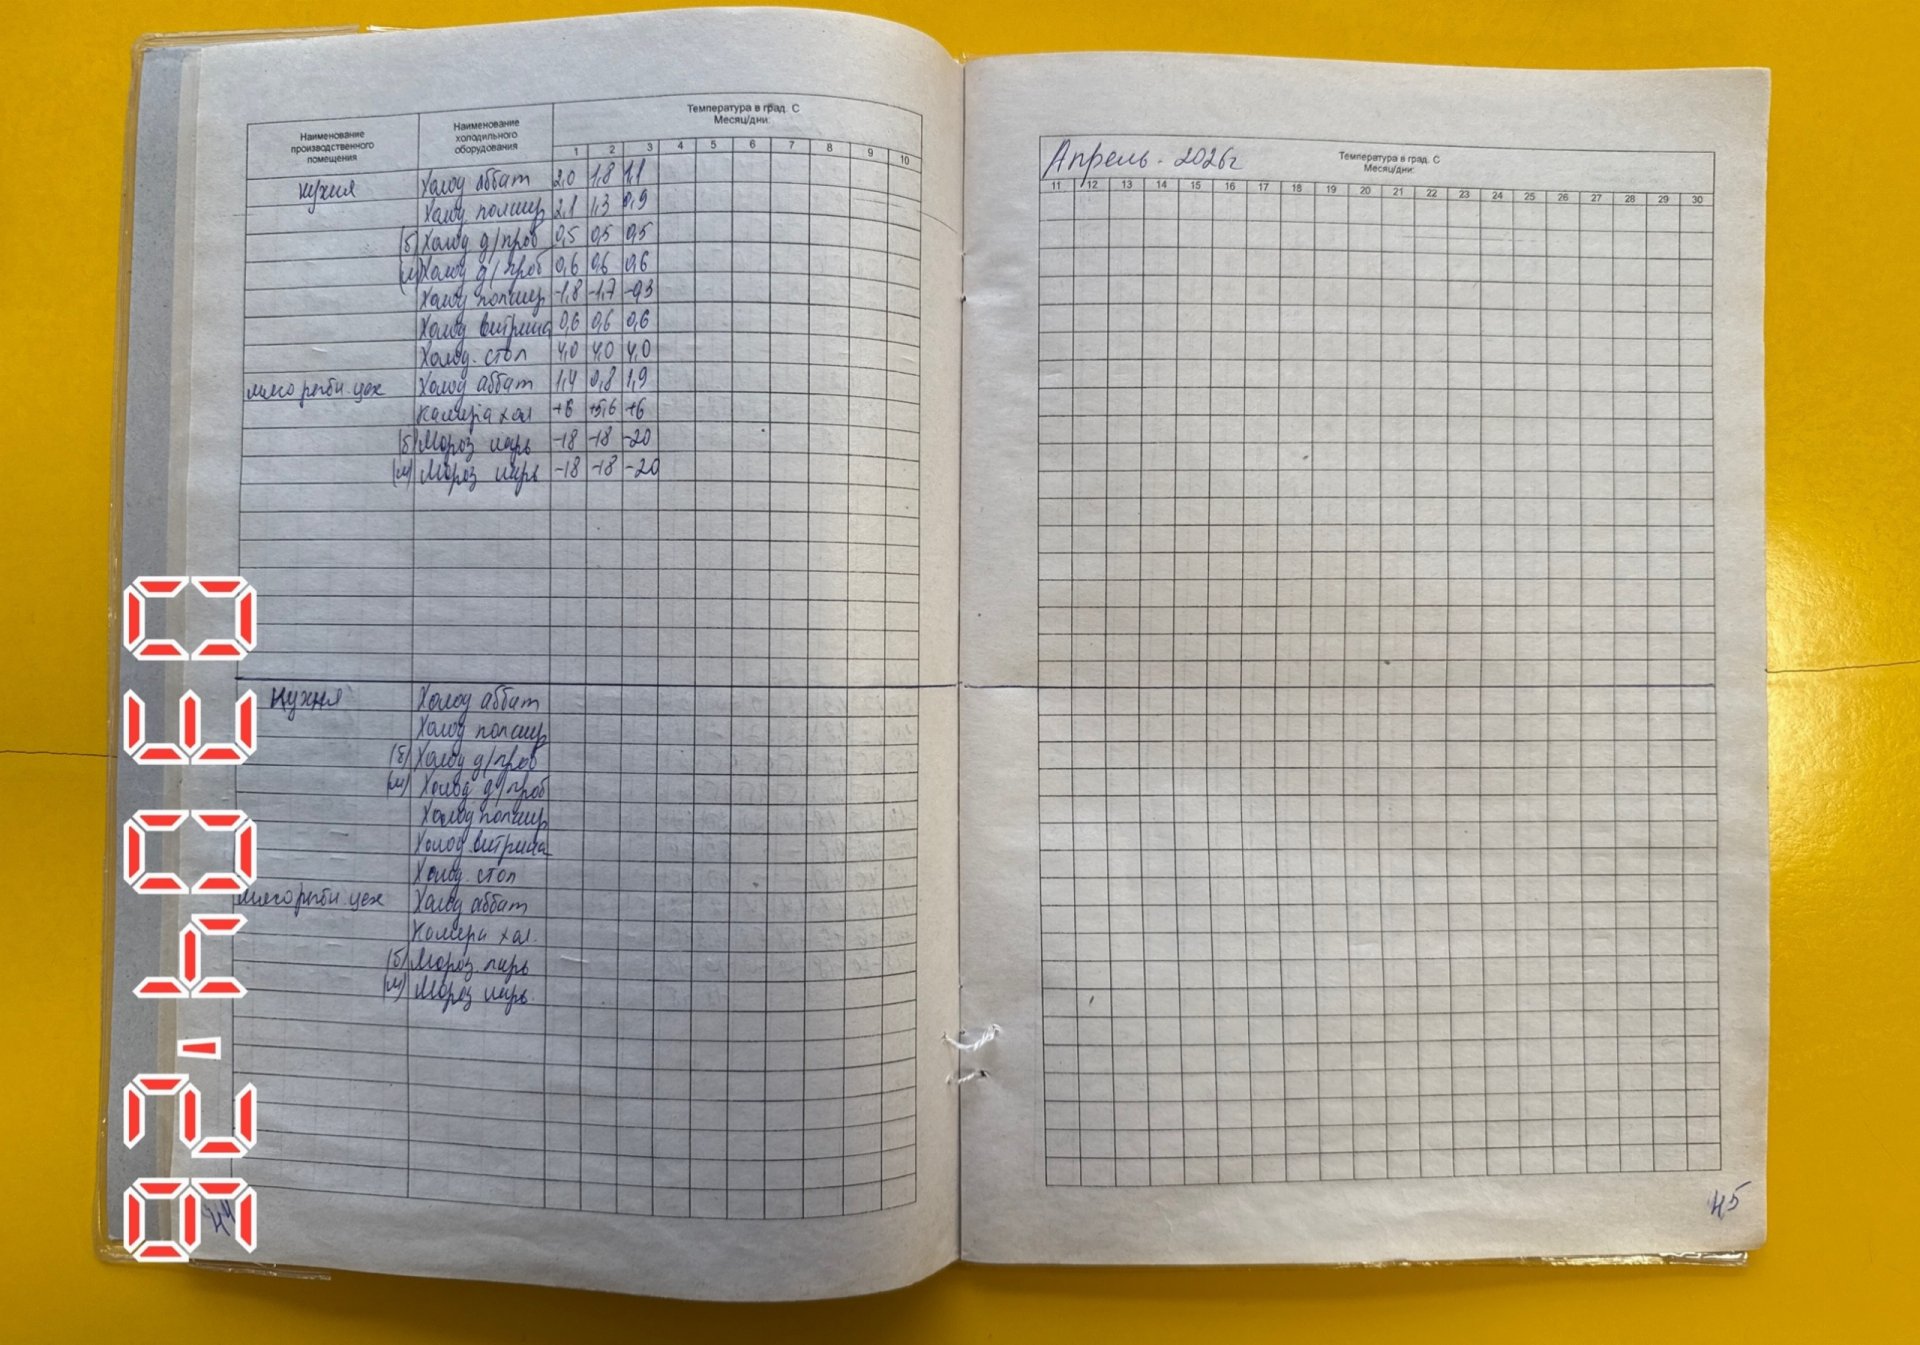 Наименование производственного помещения
Наименование холодильного оборудования
Температура в град. С
Месяц/дни:
1 2 3 4 5 6 7 8 9 10
кухня Холод аббат 2,0 1,8 1,1
Холод полаир 2,1 1,3 0,9
(б) Холод д/проб 0,5 0,5 0,5
(м) Холод д/проб 0,6 0,6 0,6
Холод полаир -1,8 -1,7 -0,3
Холод витрина 0,6 0,6 0,6
Холод. стол 4,0 4,0 4,0
мясо рыбн. цех Холод аббат 1,4 0,8 1,9
камера хол +6 +5,6 +6
(б) Мороз ларь -18 -18 -20
(м) Мороз ларь -18 -18 -20
кухня Холод аббат
Холод полаир
(б) Холод д/проб
(м) Холод д/проб
Холод полаир
Холод. витрина
Холод. стол
мясо рыбн. цех Холод аббат
Камера хол.
(б) Мороз. ларь
(м) Мороз ларь.
44
Апрель - 2026г
Температура в град. С
Месяц/дни:
11 12 13 14 15 16 17 18 19 20 21 22 23 24 25 26 27 28 29 30
45